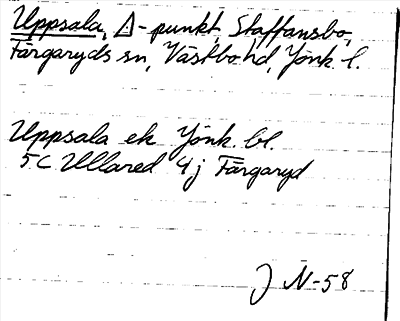 Uppsala, △-punkt, Staffansbo,
Färgaryds sn, Västbo hd, Jönk. l.
Uppsala ek Jönk. bl.
5C Ullared 4j Färgaryd
J N-58